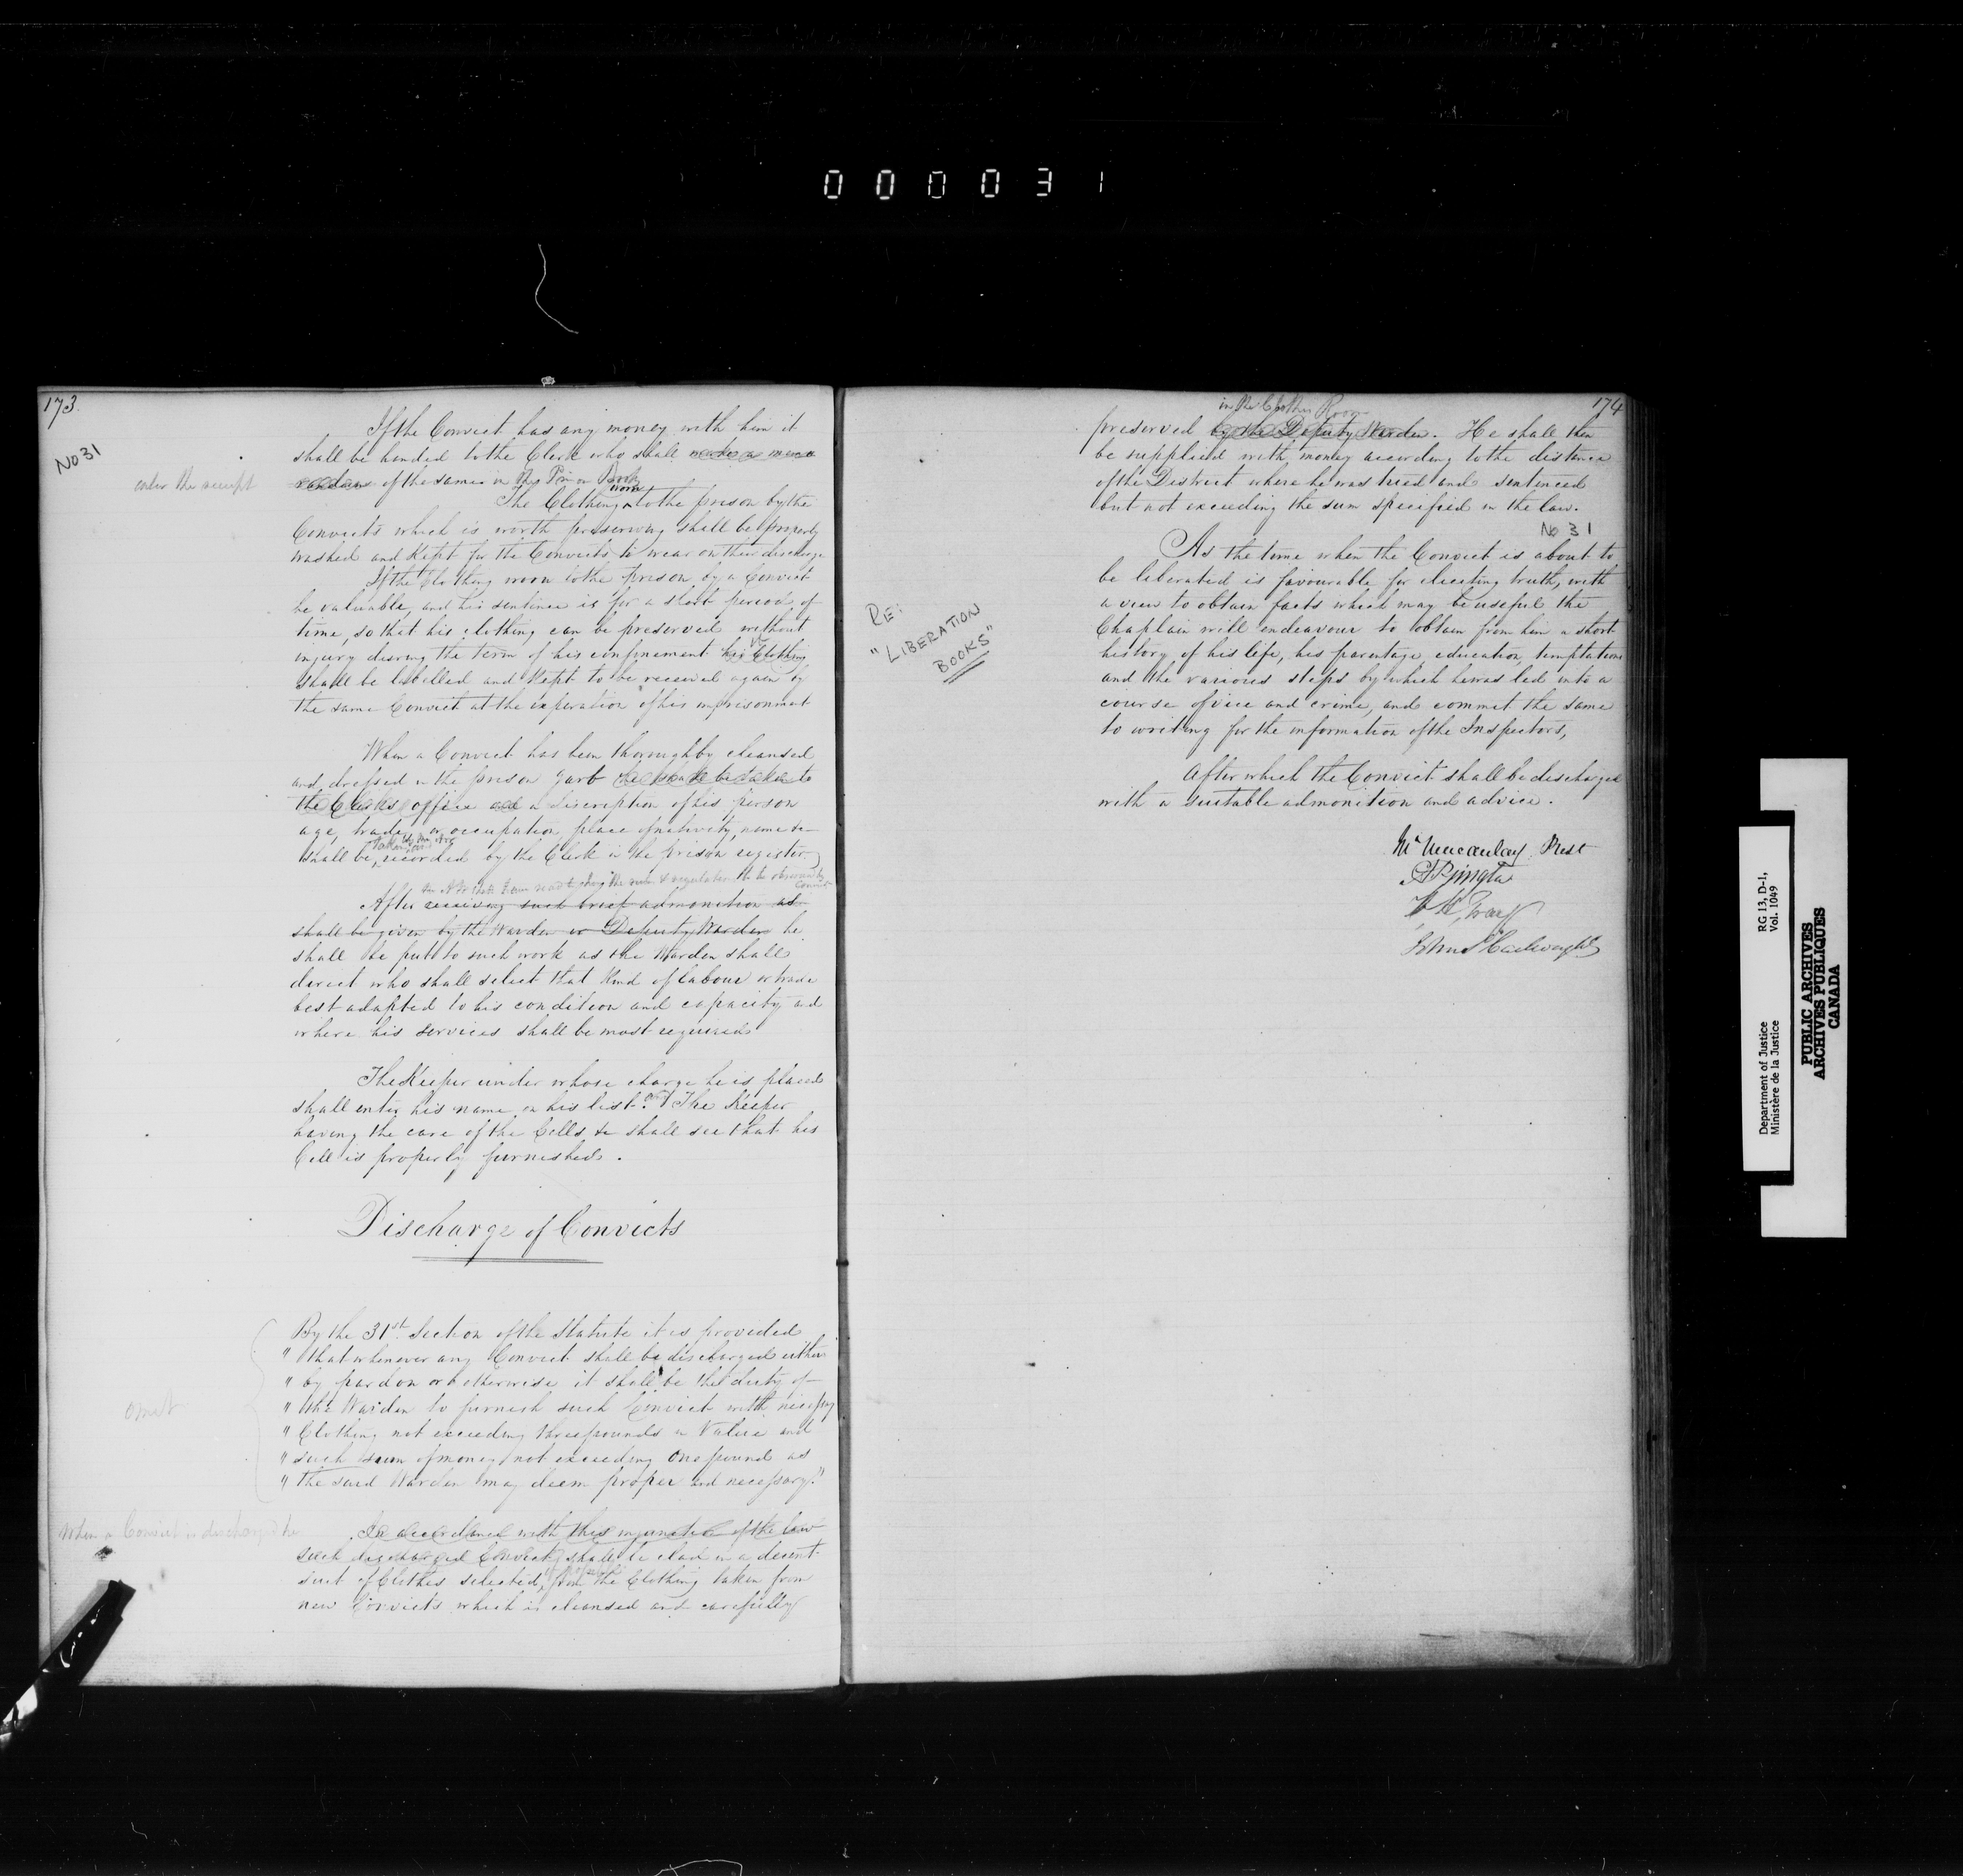 000031
173
No 31
If the Convict has any money with him it
shall be handed to the Clerk who shall make a memo
enter the receipt
randum of the same in the Prison Books
worn
The Clothing to the prison by the
Convicts which is worth preserving shall be properly
washed and Kept for the Convicts to wear on their discharge
If the Clothing worn to the prison by a Convict
be valuable, and his sentence is for a short period of
time, so that his clothing can be preserved without
it
injury during the term of his confinement his Clothing
shall be labelled and Kept to be received again by
the same Convict at the experation of his imprisonment
When a Convict has been thoroughly cleansed
and dressed in the prison garb he shall be taken to
the Clerks office and a discription of his person
age, trade, or occupation, place of nativity, name &c
taken by the
shall be recorded by the Clerk in the prison register
the rules & regulations to be observed by
Convicts
After receiving such brief admonition as
shall be given by the Warden or Deputy Warden he
shall be put to such work as the Warden shall
direct who shall select that Kind of labour or trade
best adapted to his condition and capacity and
where his services shall be most required
The Keeper under whose charge he is placed
shall enter his name on his list. and The Keeper
having the care of the Cells &c shall see that his
Cell is properly furnished.
Discharge of Convicts
By the 31st Section of the Statute it is provided
" that whenever any Convict shall be discharged either
" by pardon or otherwise it shall be the duty of
omit
" the Warden to furnish such Convict with necessary
" Clothing not exceeding three pounds in Value and
" such sum of money not exceeding One pound as
" the said Warden may deem proper and necessary."
When a Convict is discharged he
In accordance with this injunction of the law
such discharged Convict shall be clad in a decent
suit of Clothes selected, from the Clothing taken from
new Convicts which is cleansed and carefully
174
in the Clothes Room
preserved by the Deputy Warden. He shall then
be supplied with money according to the distance
of the District where he was tried and sentenced
but not exceeding the sum specified in the law.
No 31
As the time when the Convict is about to
be liberated is favourable for eliciting truth, with
a view to obtain facts which may be useful the
Chaplain will endeavour to obtain from him a short
history of his life, his parentage, education, temptations
and the various steps by which he was led into a
course of vice and crime, and commit the same
to writing for the information of the Inspectors,
After which the Convict shall be discharged
with a suitable admonition and advice.
RE:
"LIBERATION
BOOKS"
Macaulay. Prest
John S Cartwright
RG 13, D-1,
Vol. 1049
Department of Justice
Ministère de la Justice
PUBLIC ARCHIVES
ARCHIVES PUBLIQUES
CANADA